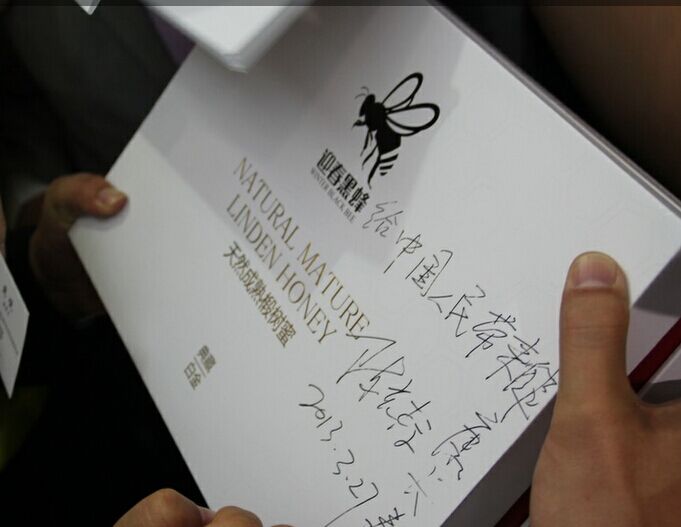 迎春黑蜂
WINTER BLACK BEE
NATURAL MATURE
LINDEN HONEY
天然成熟椴树蜜
典藏
白金
给中国人民带来健康
2013.3.27